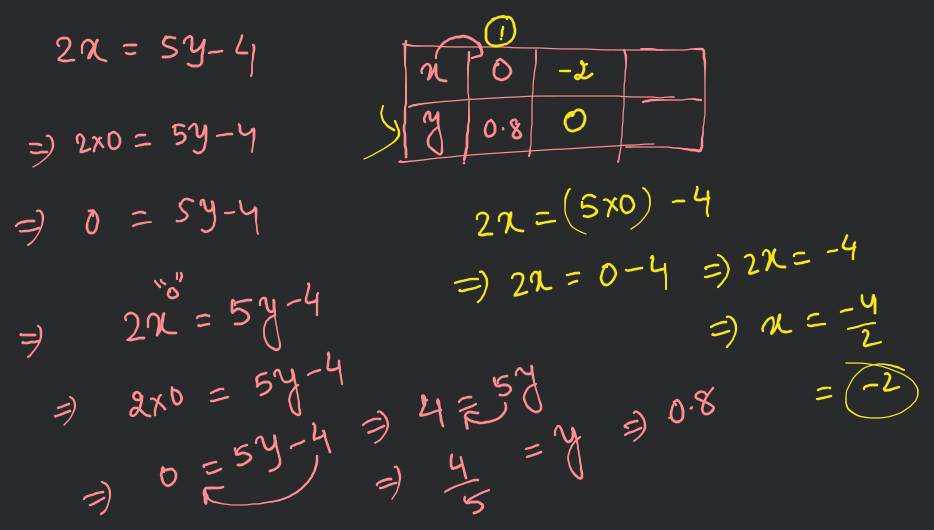 2x = 5y-4
⇒ 2×0 = 5y-4
⇒ 0 = 5y-4
"0"
⇒ 2x = 5y-4
⇒ 2×0 = 5y-4
⇒ 0 = 5y-4
⇒ 4 = 5y
⇒ 4/5 = y ⇒ 0.8
1
x 0 -2
y 0.8 0
2x = (5×0) -4
⇒ 2x = 0-4 ⇒ 2x = -4
⇒ x = -4/2
= -2